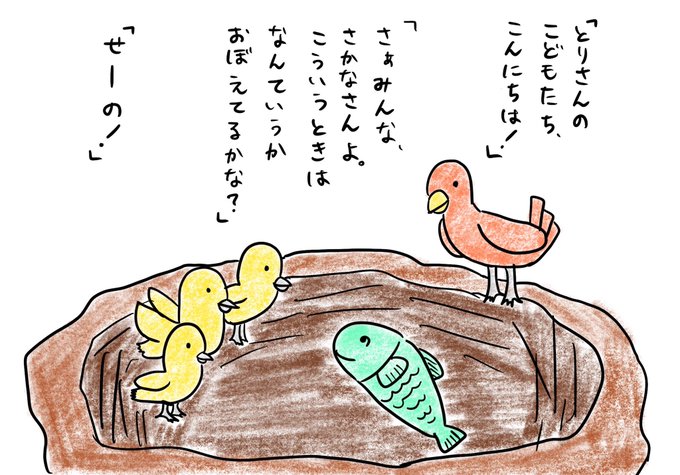 「とりさんの
こどもたち、
こんにちは!」
「さぁみんな、
さかなさんよ。
こういうときは
なんていうか
おぼえてるかな?」
「せーの!」